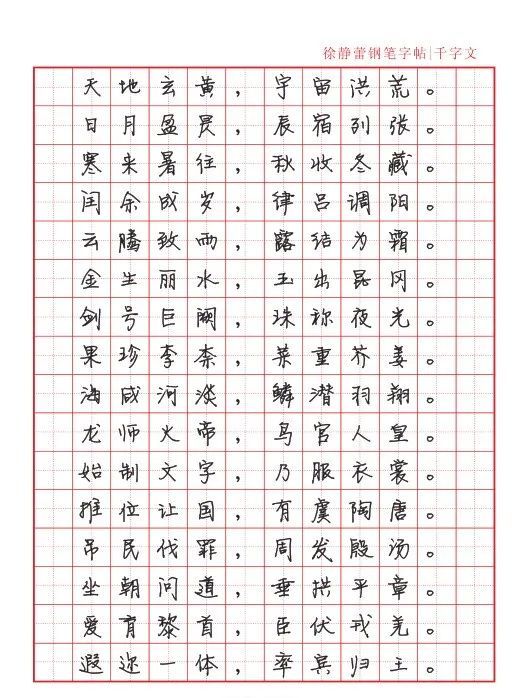 徐静蕾钢笔字帖|千字文
天地玄黄，宇宙洪荒。
日月盈昃，辰宿列张。
寒来暑往，秋收冬藏。
闰余成岁，律吕调阳。
云腾致雨，露结为霜。
金生丽水，玉出昆冈。
剑号巨阙，珠称夜光。
果珍李柰，菜重芥姜。
海咸河淡，鳞潜羽翔。
龙师火帝，鸟官人皇。
始制文字，乃服衣裳。
推位让国，有虞陶唐。
吊民伐罪，周发殷汤。
坐朝问道，垂拱平章。
爱育黎首，臣伏戎羌。
遐迩一体，率宾归王。